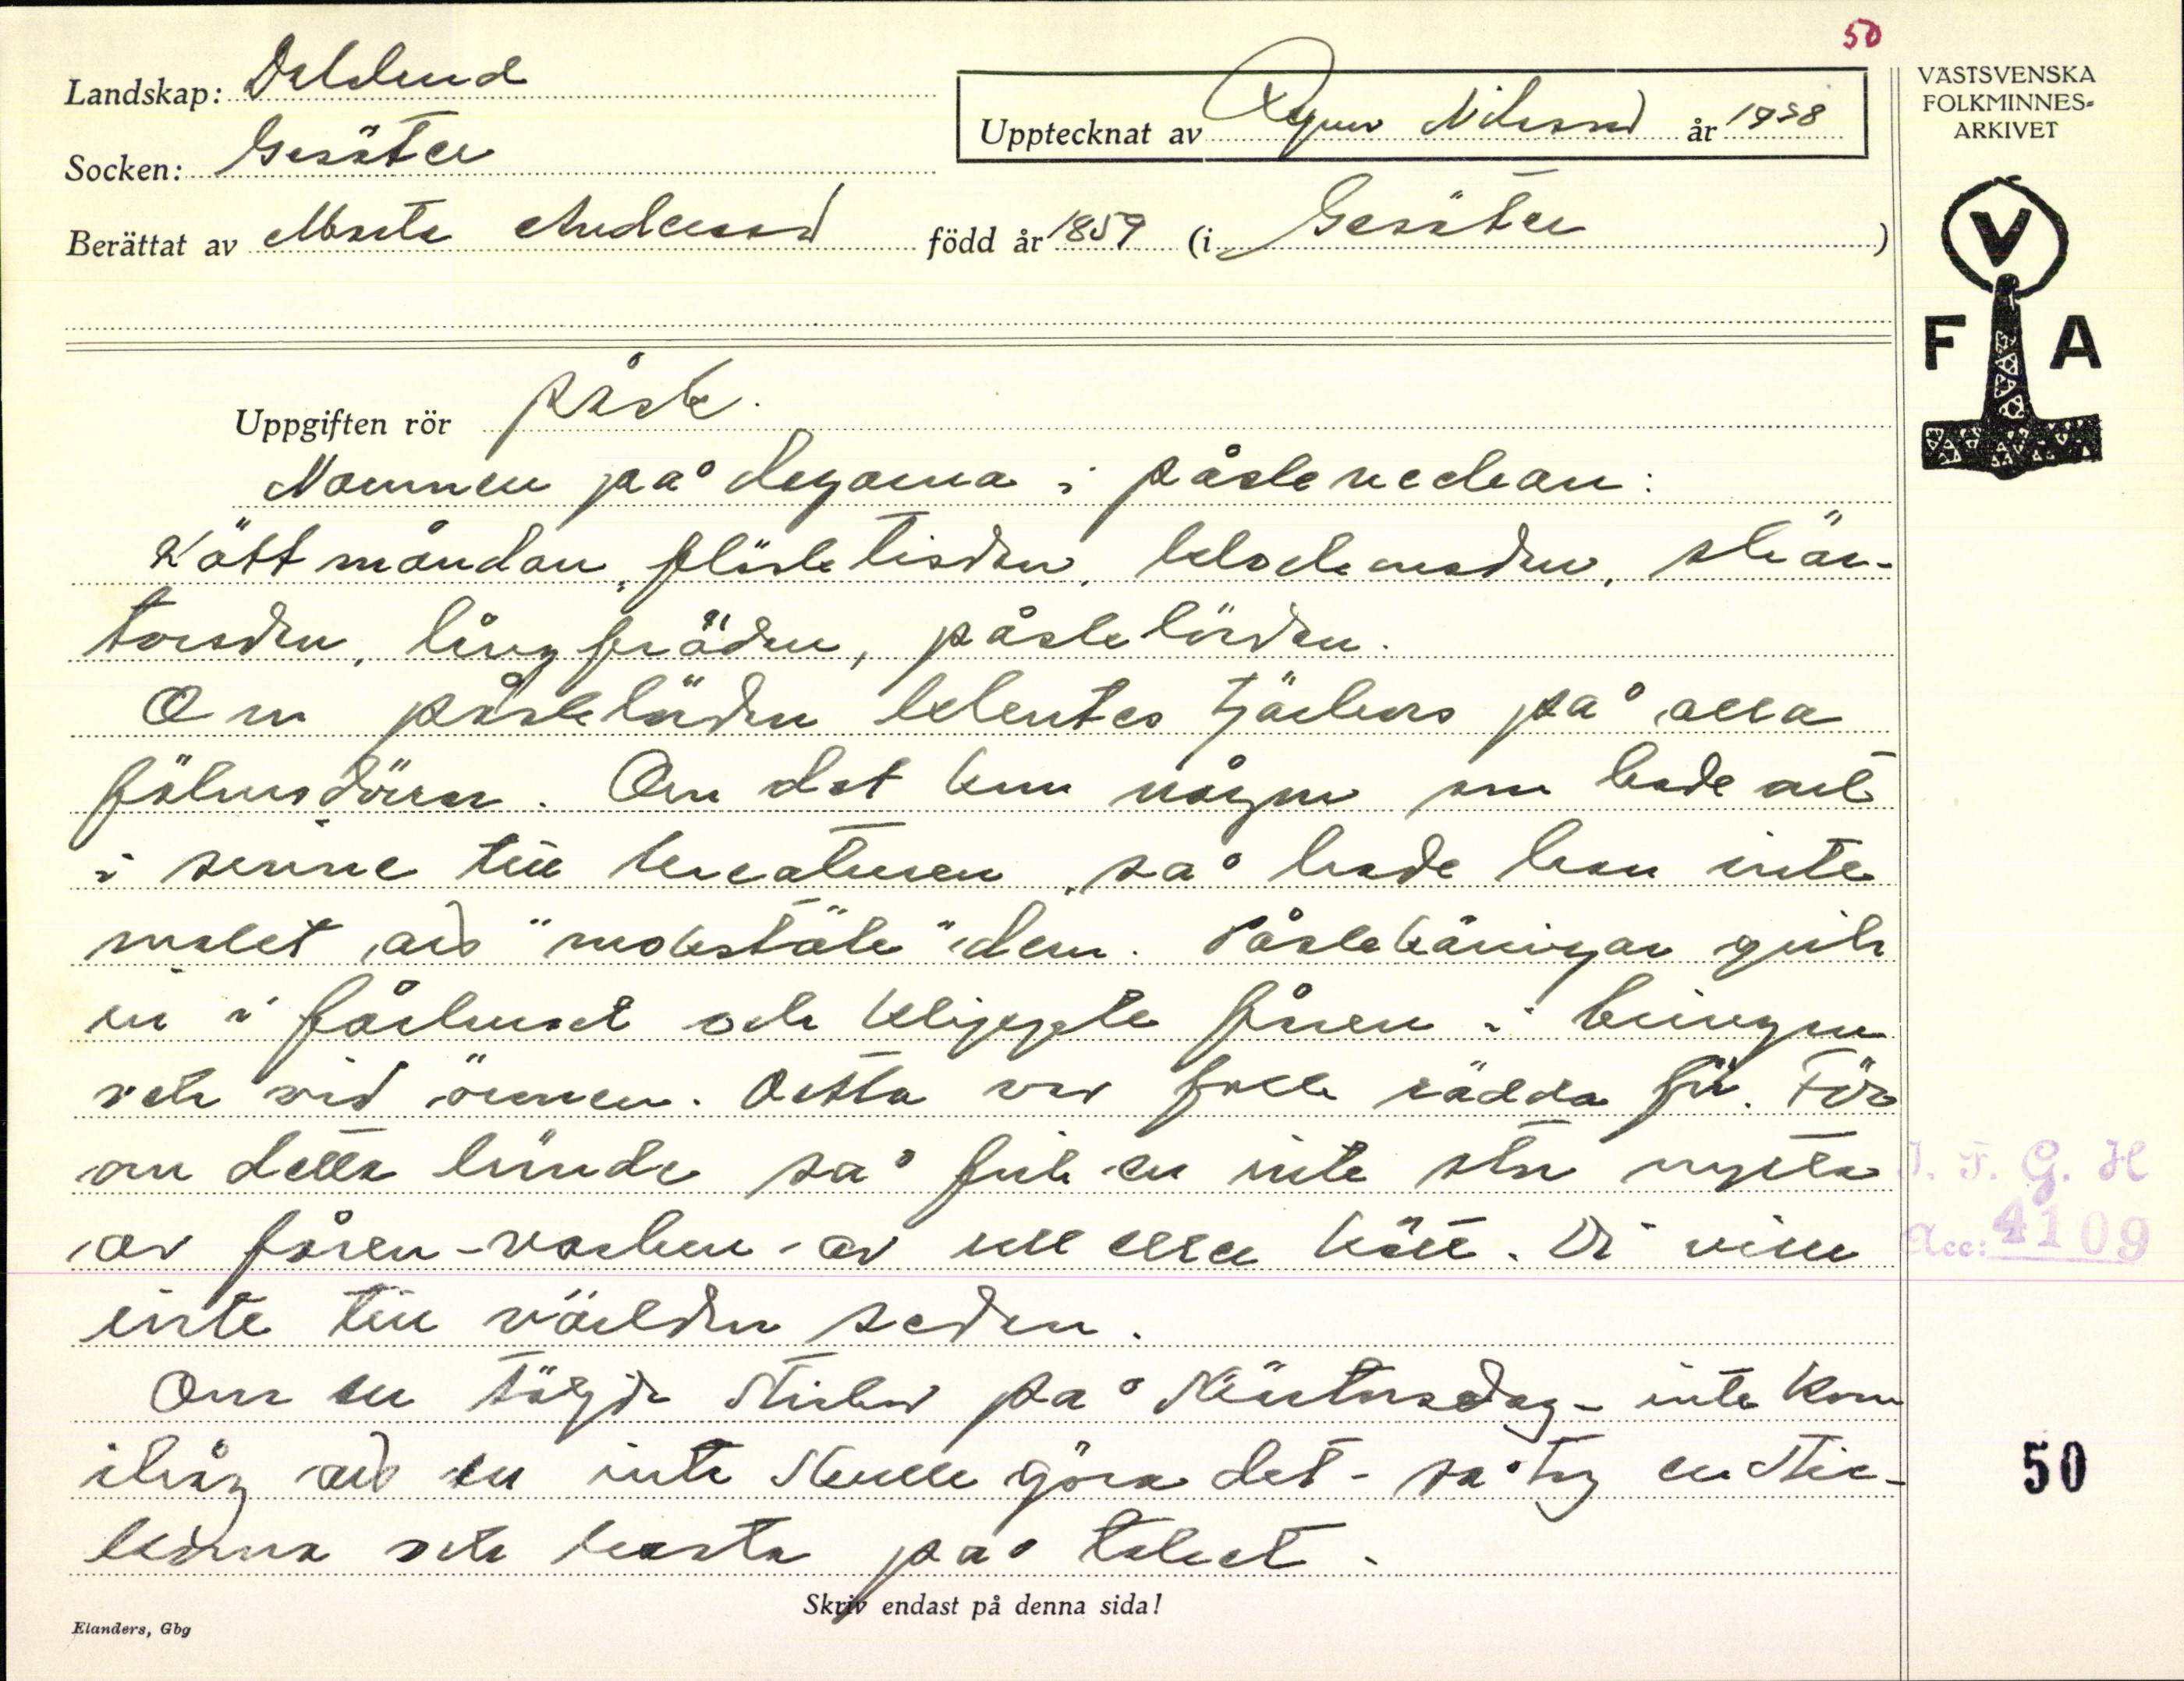 50
Landskap: Dalsland
Upptecknat av Ragnar Nilsson år 1938
VÄSTSVENSKA
FOLKMINNES-
ARKIVET
Socken: Gesäter
Berättat av Marta Andersson född år 1859 (i Gesäter)
V
F A
Uppgiften rör påsk.
Namnen på dagarna i påskveckan:
Köttmåndan, flösktisdan, askonsdan, skär-
torsdan, långfrädan, påsklördan.
Om påsklördan kluttes tjärkors på alla
föhusdörrar. Om det kom någon som hade ont
i sinne till kreaturen, så hade han inte
makt att "motstäla" dem. Påskkäringar gick
in i fårhuset och klippte fåren i bringan
och vid öronen. Detta var folk rädda för. För
om detta hände så fick en inte stor nytta
av fåren - varken av ull eller kött. Di ville
inte till världen sedan.
Om en töljde stickor på Skärtorsdag - inte kom
ihåg att en inte skulle göra det - så tog en stic-
korna och kasta på taket.
J. F. G. H
Acc: 4109
50
Skriv endast på denna sida!
Elanders, Gbg